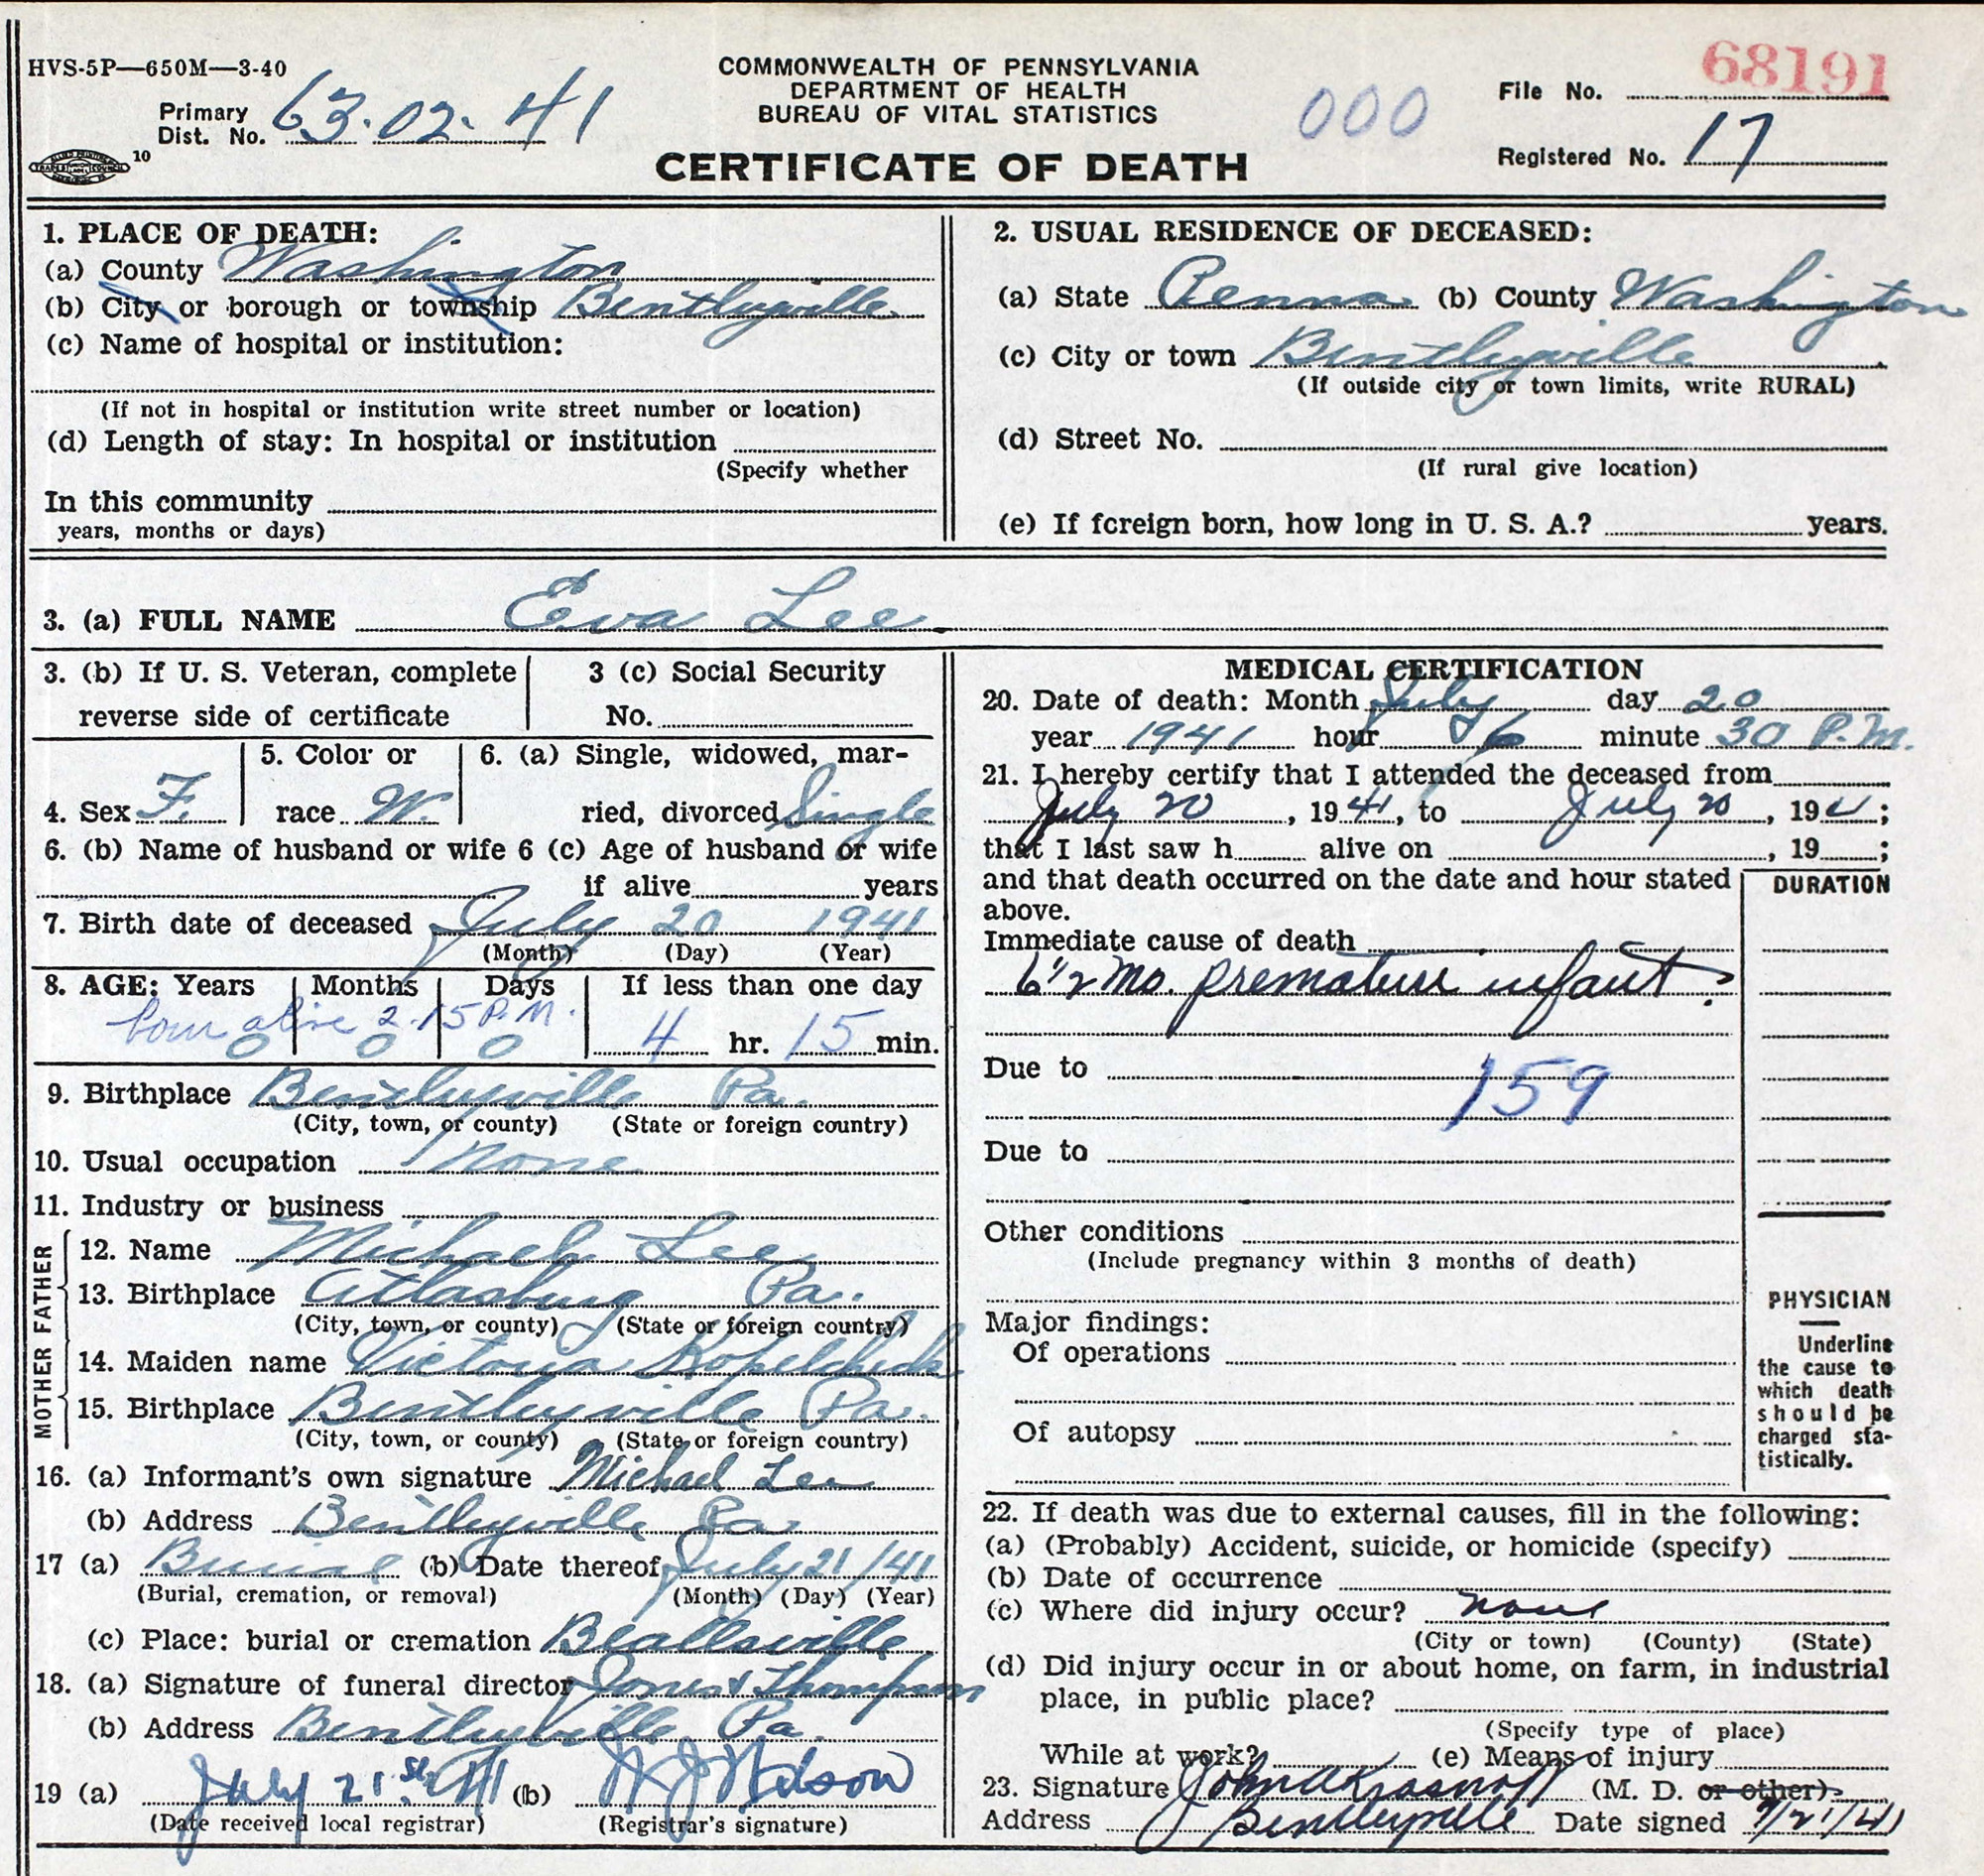 HVS-5P—650M—3-40
COMMONWEALTH OF PENNSYLVANIA
DEPARTMENT OF HEALTH
BUREAU OF VITAL STATISTICS
CERTIFICATE OF DEATH
Primary Dist. No. 63.02.41
10
000
File No. 68191
Registered No. 17
1. PLACE OF DEATH:
(a) County Washington
(b) City or borough or township Bentleyville
(c) Name of hospital or institution:
(If not in hospital or institution write street number or location)
(d) Length of stay: In hospital or institution
(Specify whether
In this community
years, months or days)
2. USUAL RESIDENCE OF DECEASED:
(a) State Penna (b) County Washington
(c) City or town Bentleyville
(If outside city or town limits, write RURAL)
(d) Street No.
(If rural give location)
(e) If foreign born, how long in U. S. A.? years.
3. (a) FULL NAME Eva Lee
3. (b) If U. S. Veteran, complete
reverse side of certificate
3 (c) Social Security
No.
4. Sex F.
5. Color or
race W.
6. (a) Single, widowed, mar-
ried, divorced Single
6. (b) Name of husband or wife 6 (c) Age of husband or wife
if alive years
7. Birth date of deceased July 20 1941
(Month) (Day) (Year)
8. AGE: Years Months Days If less than one day
born alive 2.15 P.M.
0 0 0 4 hr. 15 min.
9. Birthplace Bentleyville Pa.
(City, town, or county) (State or foreign country)
10. Usual occupation None
11. Industry or business
FATHER
12. Name Michael Lee
13. Birthplace Atlasburg Pa.
(City, town, or county) (State or foreign country)
MOTHER
14. Maiden name Victoria Kopelchick
15. Birthplace Bentleyville Pa.
(City, town, or county) (State or foreign country)
16. (a) Informant's own signature Michael Lee
(b) Address Bentleyville Pa
17 (a) Burial (b) Date thereof July 21/41
(Burial, cremation, or removal) (Month) (Day) (Year)
(c) Place: burial or cremation Beallsville
18. (a) Signature of funeral director Jones & Thompson
(b) Address Bentleyville Pa.
19 (a) July 21st 41 (b)
(Date received local registrar) (Registrar's signature)
MEDICAL CERTIFICATION
20. Date of death: Month July day 20
year 1941 hour 6 minute 30 P.M.
21. I hereby certify that I attended the deceased from
July 20, 1941, to July 20, 19
that I last saw h alive on , 19 ;
and that death occurred on the date and hour stated
above.
DURATION
Immediate cause of death
6 1/2 Mo. premature infant
Due to 159
Due to
Other conditions
(Include pregnancy within 3 months of death)
Major findings:
Of operations
Of autopsy
PHYSICIAN
Underline
the cause to
which death
should be
charged sta-
tistically.
22. If death was due to external causes, fill in the following:
(a) (Probably) Accident, suicide, or homicide (specify)
(b) Date of occurrence
(c) Where did injury occur? none
(City or town) (County) (State)
(d) Did injury occur in or about home, on farm, in industrial
place, in public place?
(Specify type of place)
While at work? (e) Means of injury
23. Signature John A Krasnoff (M. D. or other)
Address Bentleyville Date signed 7/21/41